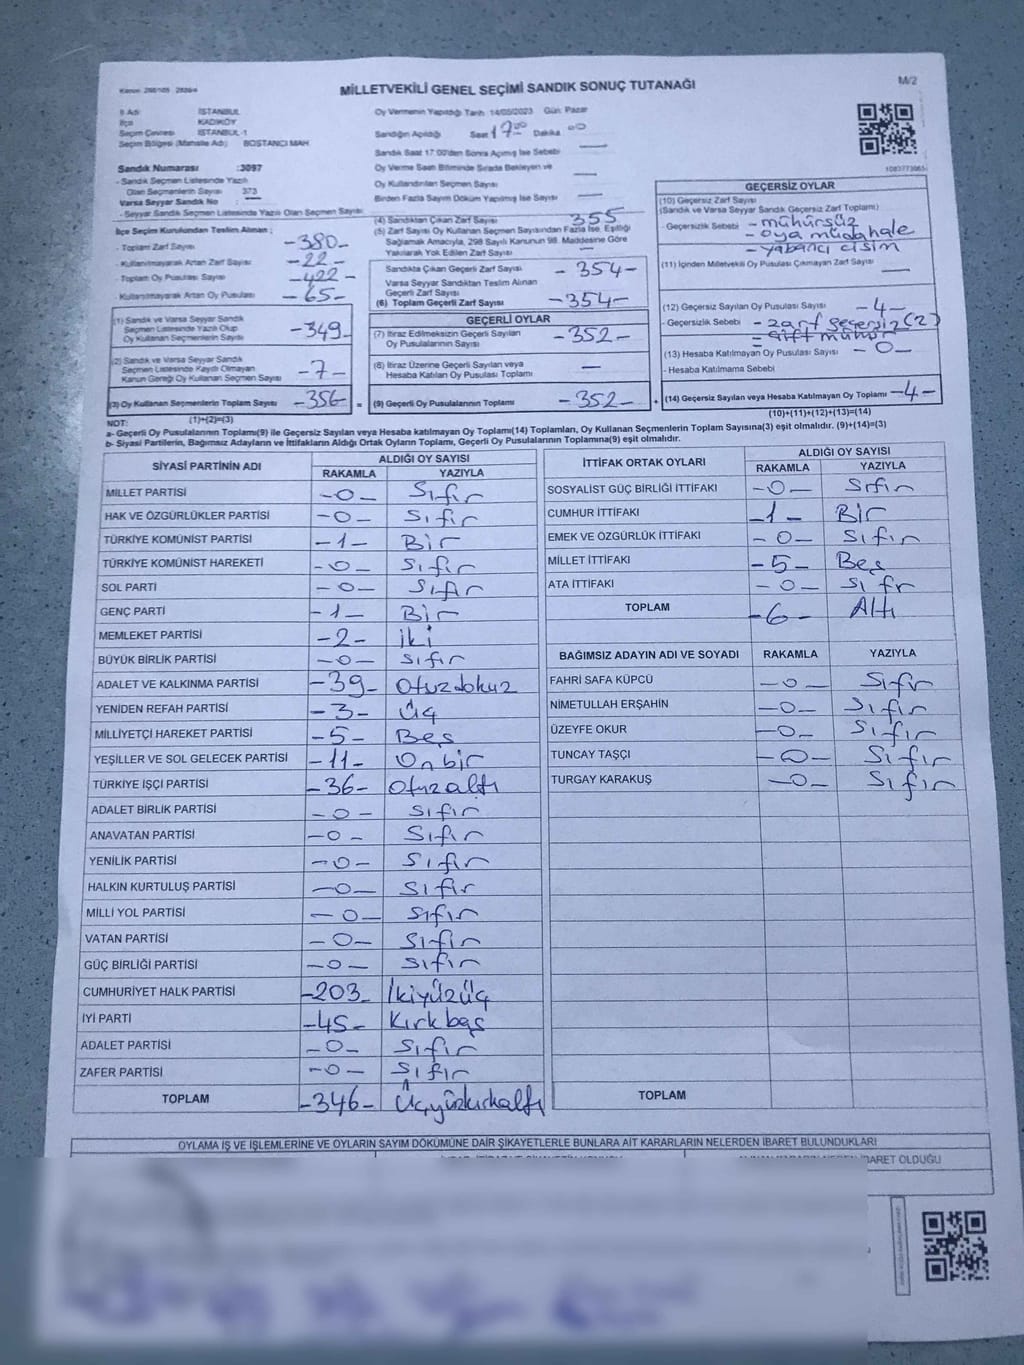 MİLLETVEKİLİ GENEL SEÇİMİ SANDIK SONUÇ TUTANAĞI
M/2
İl Adı : İSTANBUL
İlçe : KADIKÖY
Seçim Çevresi : İSTANBUL-1
Seçim Bölgesi (Mahalle Adı) : BOSTANCI MAH.
Sandık Numarası :3097
- Sandık Seçmen Listesinde Yazılı
Olan Seçmenlerin Sayısı 373
Varsa Seyyar Sandık No :
- Seyyar Sandık Seçmen Listesinde Yazılı Olan Seçmen Sayısı
İlçe Seçim Kurulundan Teslim Alınan ;
- Toplam Zarf Sayısı -380-
- Kullanılmayarak Artan Zarf Sayısı -22-
- Toplam Oy Pusulası Sayısı -422-
- Kullanılmayarak Artan Oy Pusulası -65-
(1) Sandık ve Varsa Seyyar Sandık
Seçmen Listesinde Yazılı Olup
Oy Kullanan Seçmenlerin Sayısı -349-
(2) Sandık ve Varsa Seyyar Sandık
Seçmen Listesinde Kayıtlı Olmayan
Kanun Gereği Oy Kullanan Seçmen Sayısı -7-
(3) Oy Kullanan Seçmenlerin Toplam Sayısı -356- =
(1)+(2)=(3)
Oy Vermenin Yapıldığı Tarih 14/05/2023 Gün: Pazar
Sandığın Açıldığı Saat 17:00 Dakika 00
Sandık Saat 17:00'den Sonra Açılmış İse Sebebi
Oy Verme Saati Bitiminde Sırada Bekleyen ve
Oy Kullandırılan Seçmen Sayısı
Birden Fazla Sayım Döküm Yapılmış İse Sayısı
(4) Sandıktan Çıkan Zarf Sayısı 355
(5) Zarf Sayısı Oy Kullanan Seçmen Sayısından Fazla İse, Eşitliği
Sağlamak Amacıyla, 298 Sayılı Kanunun 98. Maddesine Göre
Yakılarak Yok Edilen Zarf Sayısı —
Sandıkta Çıkan Geçerli Zarf Sayısı -354-
Varsa Seyyar Sandıktan Teslim Alınan
Geçerli Zarf Sayısı
(6) Toplam Geçerli Zarf Sayısı -354-
GEÇERLİ OYLAR
(7) İtiraz Edilmeksizin Geçerli Sayılan
Oy Pusulalarının Sayısı -352-
(8) İtiraz Üzerine Geçerli Sayılan veya
Hesaba Katılan Oy Pusulası Toplamı —
(9) Geçerli Oy Pusulalarının Toplamı -352- +
1083773665
GEÇERSİZ OYLAR
(10) Geçersiz Zarf Sayısı
(Sandık ve Varsa Seyyar Sandık Geçersiz Zarf Toplamı)
- Geçersizlik Sebebi - mühürsüz
- oya müdahale
- yabancı cisim
(11) İçinden Milletvekili Oy Pusulası Çıkmayan Zarf Sayısı —
(12) Geçersiz Sayılan Oy Pusulası Sayısı -4-
- Geçersizlik Sebebi - zarf geçersiz (2)
- çift mühür
(13) Hesaba Katılmayan Oy Pusulası Sayısı -0-
- Hesaba Katılmama Sebebi
(14) Geçersiz Sayılan veya Hesaba Katılmayan Oy Toplamı -4-
(10)+(11)+(12)+(13)=(14)
NOT:
a- Geçerli Oy Pusulalarının Toplamı(9) ile Geçersiz Sayılan veya Hesaba katılmayan Oy Toplamı(14) Toplamları, Oy Kullanan Seçmenlerin Toplam Sayısına(3) eşit olmalıdır. (9)+(14)=(3)
b- Siyasi Partilerin, Bağımsız Adayların ve İttifakların Aldığı Ortak Oyların Toplamı, Geçerli Oy Pusulalarının Toplamına(9) eşit olmalıdır.
SİYASİ PARTİNİN ADI ALDIĞI OY SAYISI
RAKAMLA YAZIYLA
MİLLET PARTİSİ -0- Sıfır
HAK VE ÖZGÜRLÜKLER PARTİSİ -0- Sıfır
TÜRKİYE KOMÜNİST PARTİSİ -1- Bir
TÜRKİYE KOMÜNİST HAREKETİ -0- Sıfır
SOL PARTİ -0- Sıfır
GENÇ PARTİ -1- Bir
MEMLEKET PARTİSİ -2- İki
BÜYÜK BİRLİK PARTİSİ -0- Sıfır
ADALET VE KALKINMA PARTİSİ -39- Otuzdokuz
YENİDEN REFAH PARTİSİ -3- Üç
MİLLİYETÇİ HAREKET PARTİSİ -5- Beş
YEŞİLLER VE SOL GELECEK PARTİSİ -11- Onbir
TÜRKİYE İŞÇİ PARTİSİ -36- Otuzaltı
ADALET BİRLİK PARTİSİ -0- Sıfır
ANAVATAN PARTİSİ -0- Sıfır
YENİLİK PARTİSİ -0- Sıfır
HALKIN KURTULUŞ PARTİSİ -0- Sıfır
MİLLİ YOL PARTİSİ -0- Sıfır
VATAN PARTİSİ -0- Sıfır
GÜÇ BİRLİĞİ PARTİSİ -0- Sıfır
CUMHURİYET HALK PARTİSİ -203- İkiyüzüç
İYİ PARTİ -45- Kırkbeş
ADALET PARTİSİ -0- Sıfır
ZAFER PARTİSİ -0- Sıfır
TOPLAM -346- Üçyüzkırkaltı
İTTİFAK ORTAK OYLARI ALDIĞI OY SAYISI
RAKAMLA YAZIYLA
SOSYALİST GÜÇ BİRLİĞİ İTTİFAKI -0- Sıfır
CUMHUR İTTİFAKI -1- Bir
EMEK VE ÖZGÜRLÜK İTTİFAKI -0- Sıfır
MİLLET İTTİFAKI -5- Beş
ATA İTTİFAKI -0- Sıfır
TOPLAM -6- Altı
BAĞIMSIZ ADAYIN ADI VE SOYADI RAKAMLA YAZIYLA
FAHRİ SAFA KÜPCÜ -0- Sıfır
NİMETULLAH ERŞAHİN -0- Sıfır
ÜZEYFE OKUR -0- Sıfır
TUNCAY TAŞÇI -0- Sıfır
TURGAY KARAKUŞ -0- Sıfır
TOPLAM
OYLAMA İŞ VE İŞLEMLERİNE VE OYLARIN SAYIM DÖKÜMÜNE DAİR ŞİKAYETLERLE BUNLARA AİT KARARLARIN NELERDEN İBARET BULUNDUKLARI
İBARET OLDUĞU